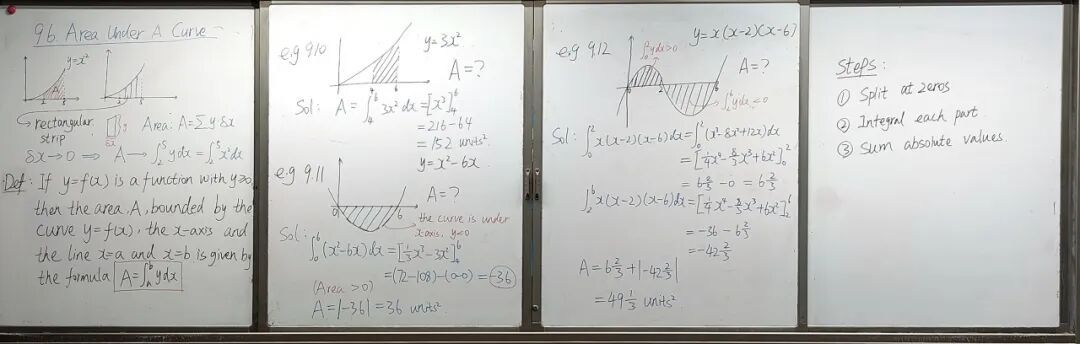 9.6. Area Under A Curve
y=x²
A
rectangular strip
y
δx
Area: A=∑ y δx
δx→0 ⟹ A→∫₂⁵ y dx = ∫₂⁵ x² dx
Def: If y=f(x) is a function with y≥0,
then the area, A, bounded by the
curve y=f(x), the x-axis and
the line x=a and x=b is given by
the formula A=∫ₐᵇ y dx
e.g 9.10
y=3x²
A=?
Sol: A=∫₄⁶ 3x² dx = [x³]₄⁶
=216-64
=152 units².
e.g 9.11
y=x²-6x
A=?
0
6
the curve is under
x-axis, y<0
Sol:
∫₀⁶ (x²-6x) dx = [⅓x³-3x²]₀⁶
=(72-108)-(0-0)=-36
(Area >0)
A=|-36|=36 units².
e.g 9.12
y=x(x-2)(x-6)
∫₀² y dx>0
A=?
0
2
6
∫₂⁶ y dx<0
Sol: ∫₀² x(x-2)(x-6)dx=∫₀² (x³-8x²+12x)dx
=[¼x⁴-8/3x³+6x²]₀²
=6⅔-0=6⅔
∫₂⁶ x(x-2)(x-6)dx=[¼x⁴-8/3x³+6x²]₂⁶
=-36-6⅔
=-42⅔
A=6⅔+|-42⅔|
=49⅓ units²
Steps:
① Split at zeros
② Integral each part.
③ Sum absolute values.